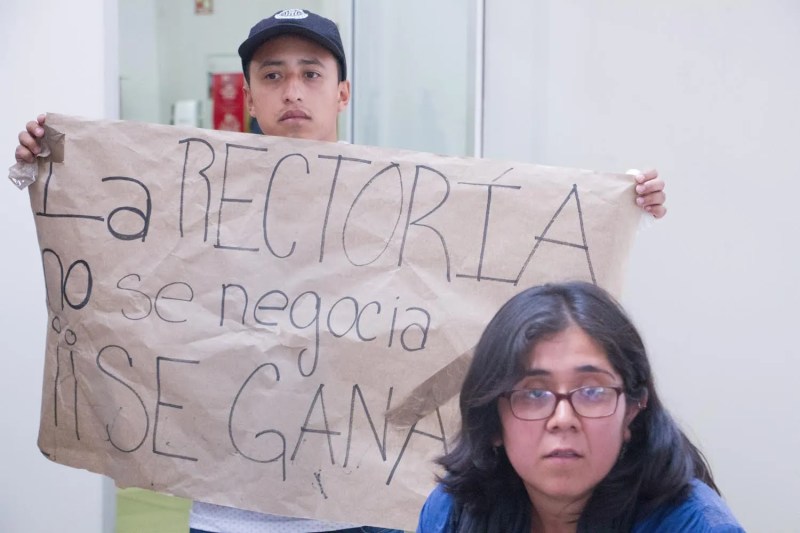 La RECTORÍA
no se negocia
¡¡SE GANA